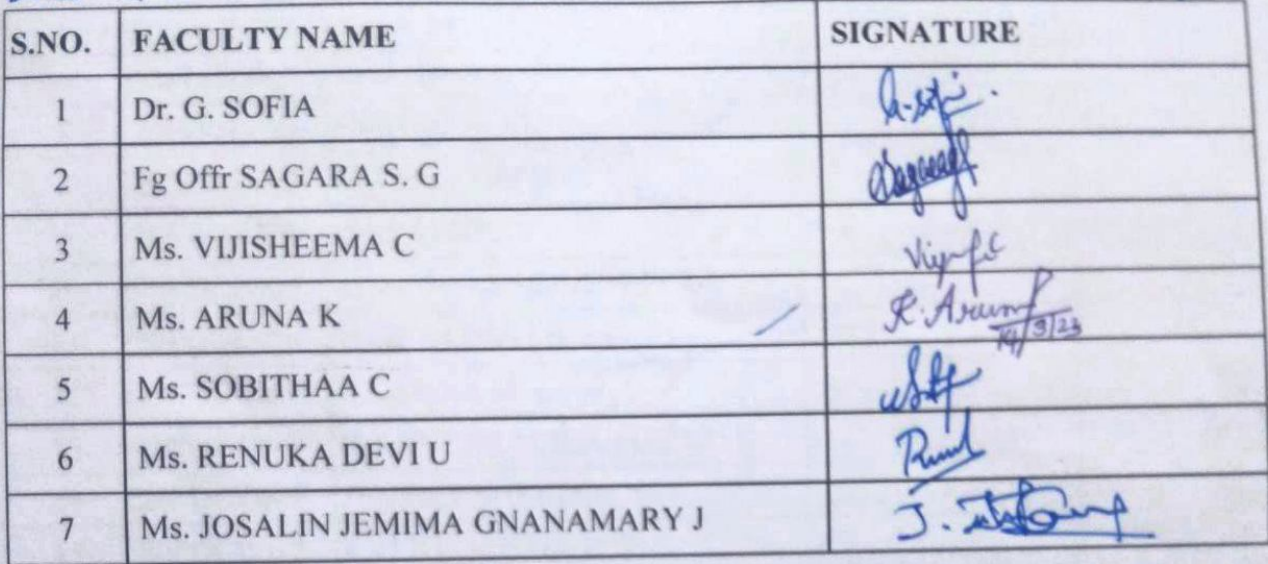 S.NO. FACULTY NAME SIGNATURE
1 Dr. G. SOFIA
2 Fg Offr SAGARA S. G
3 Ms. VIJISHEEMA C
4 Ms. ARUNA K 14/3/23
5 Ms. SOBITHAA C
6 Ms. RENUKA DEVI U
7 Ms. JOSALIN JEMIMA GNANAMARY J J.